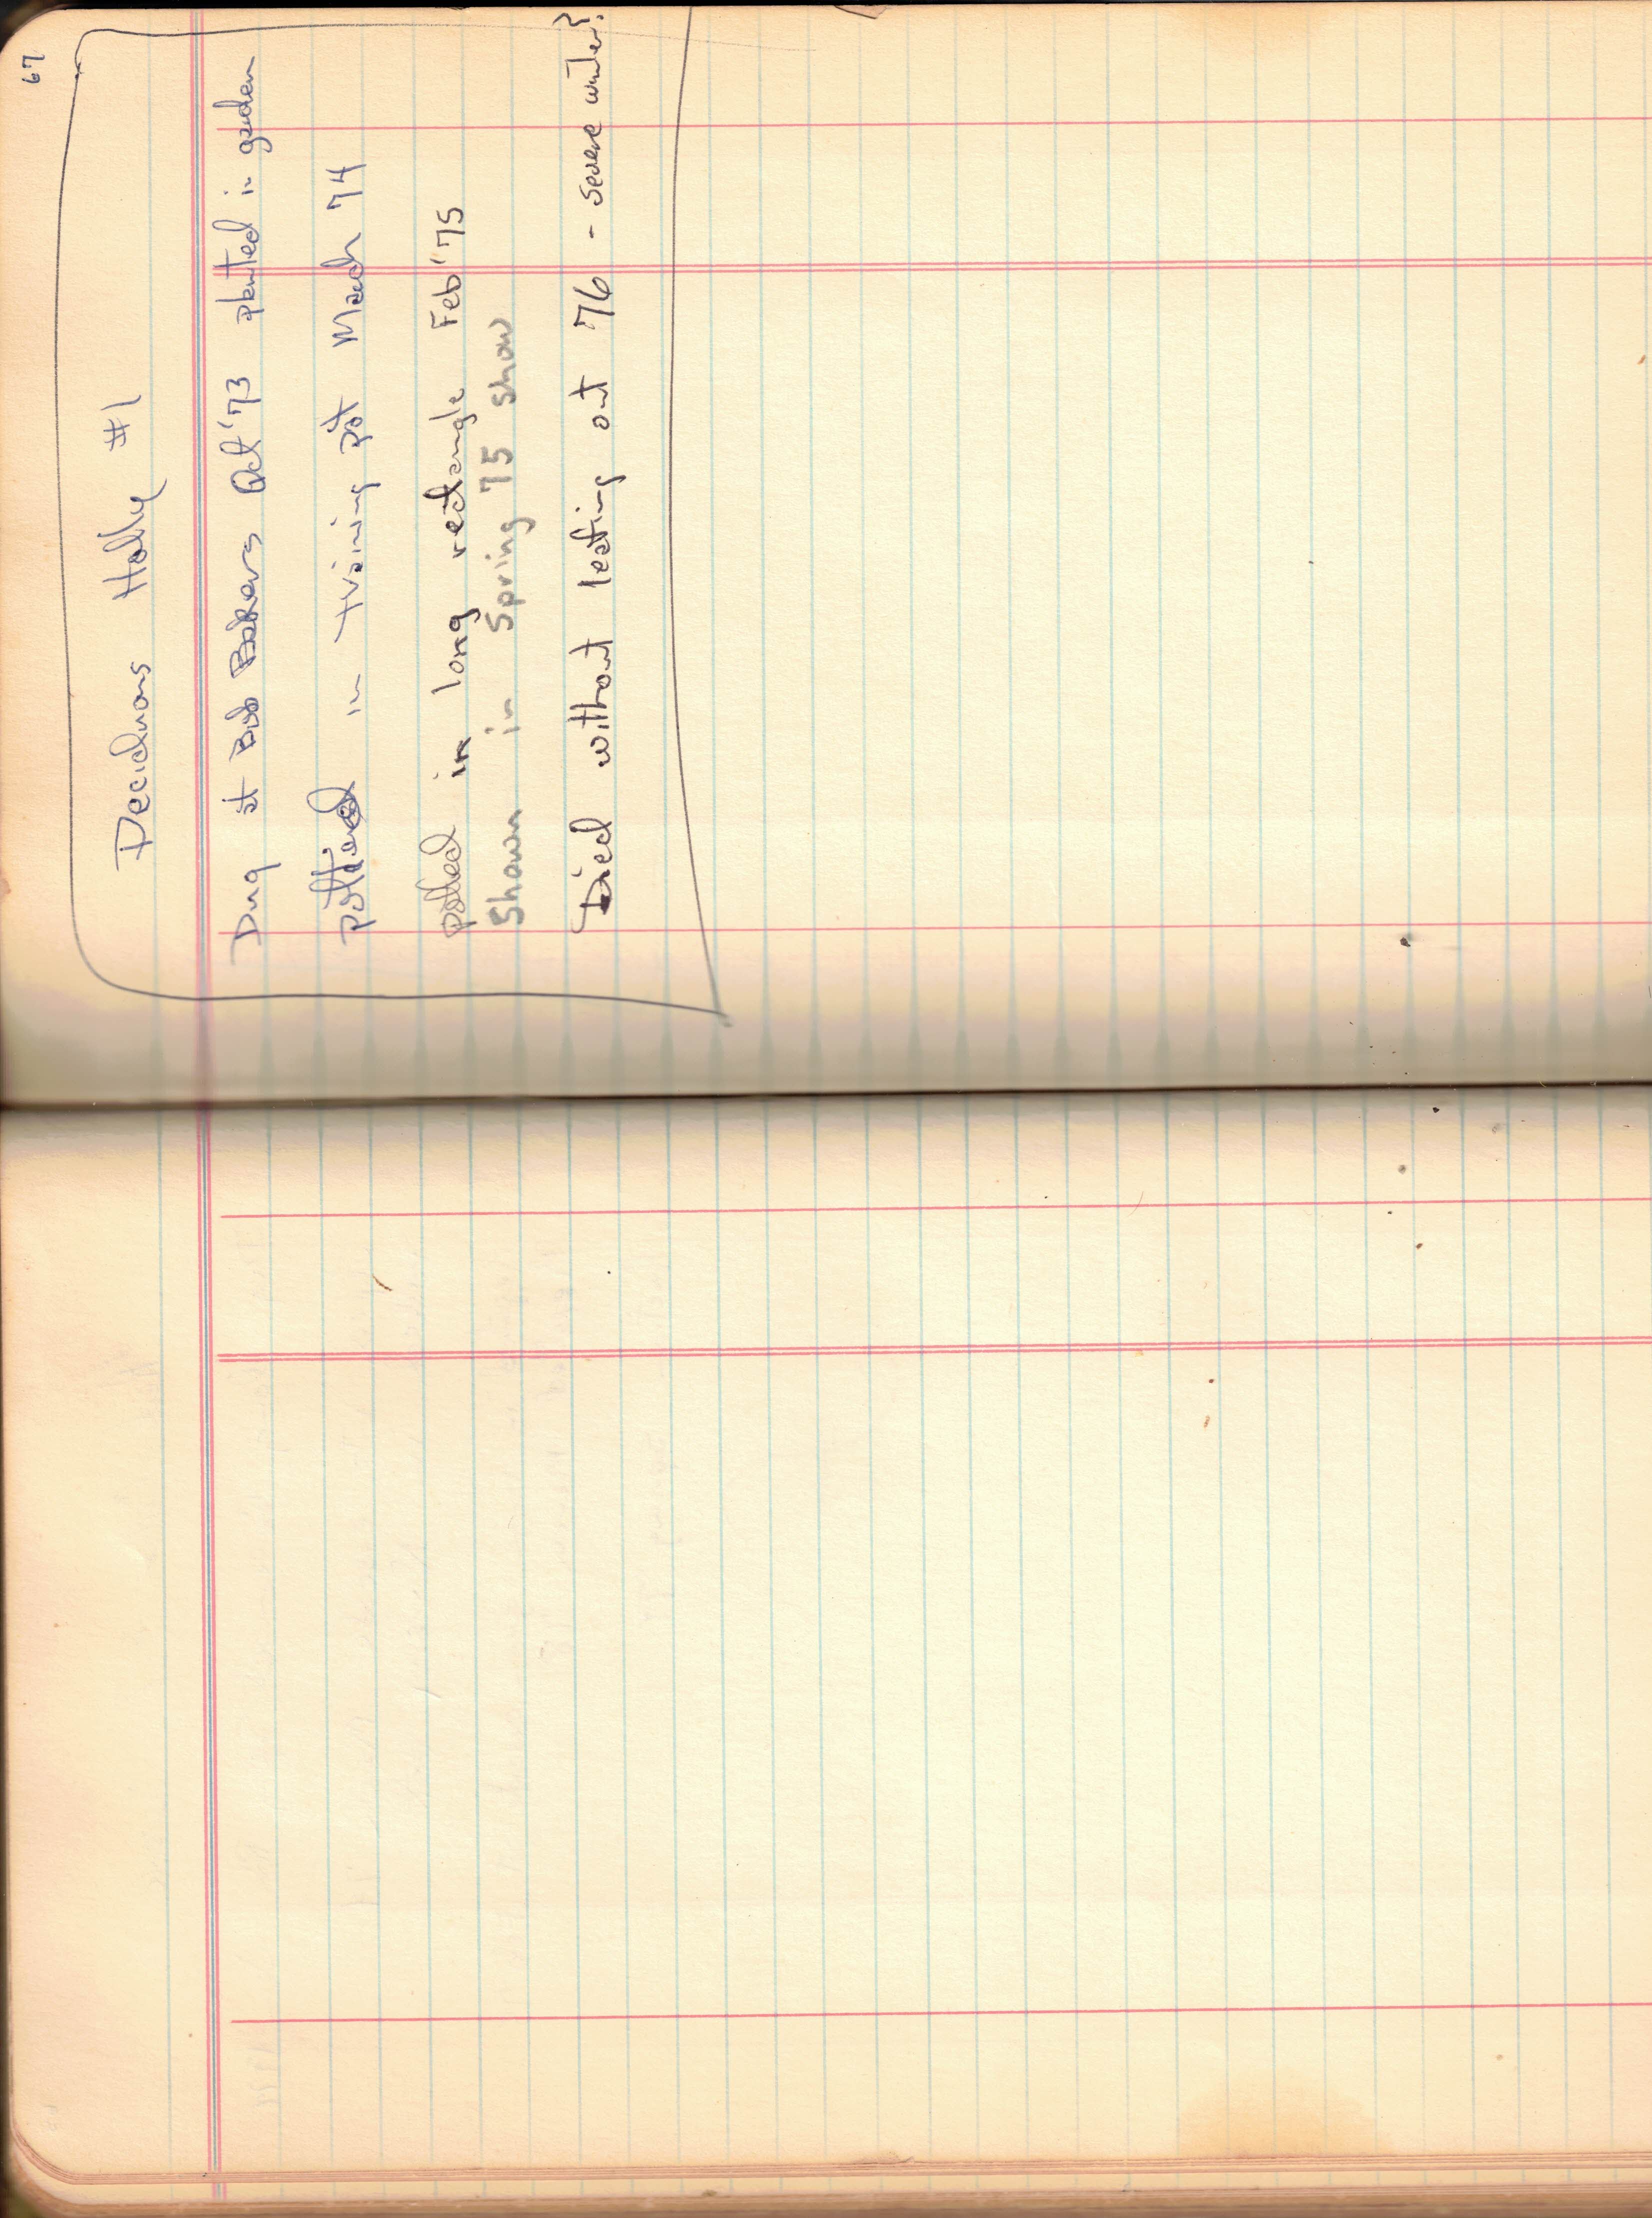 67
Deciduous Holly #1
Dug at Bob Bakers Oct '73 planted in garden
potted in training pot March 74
potted in long rectangle Feb '75
Shown in Spring 75 show
Died without leafing out 76 - severe winter?